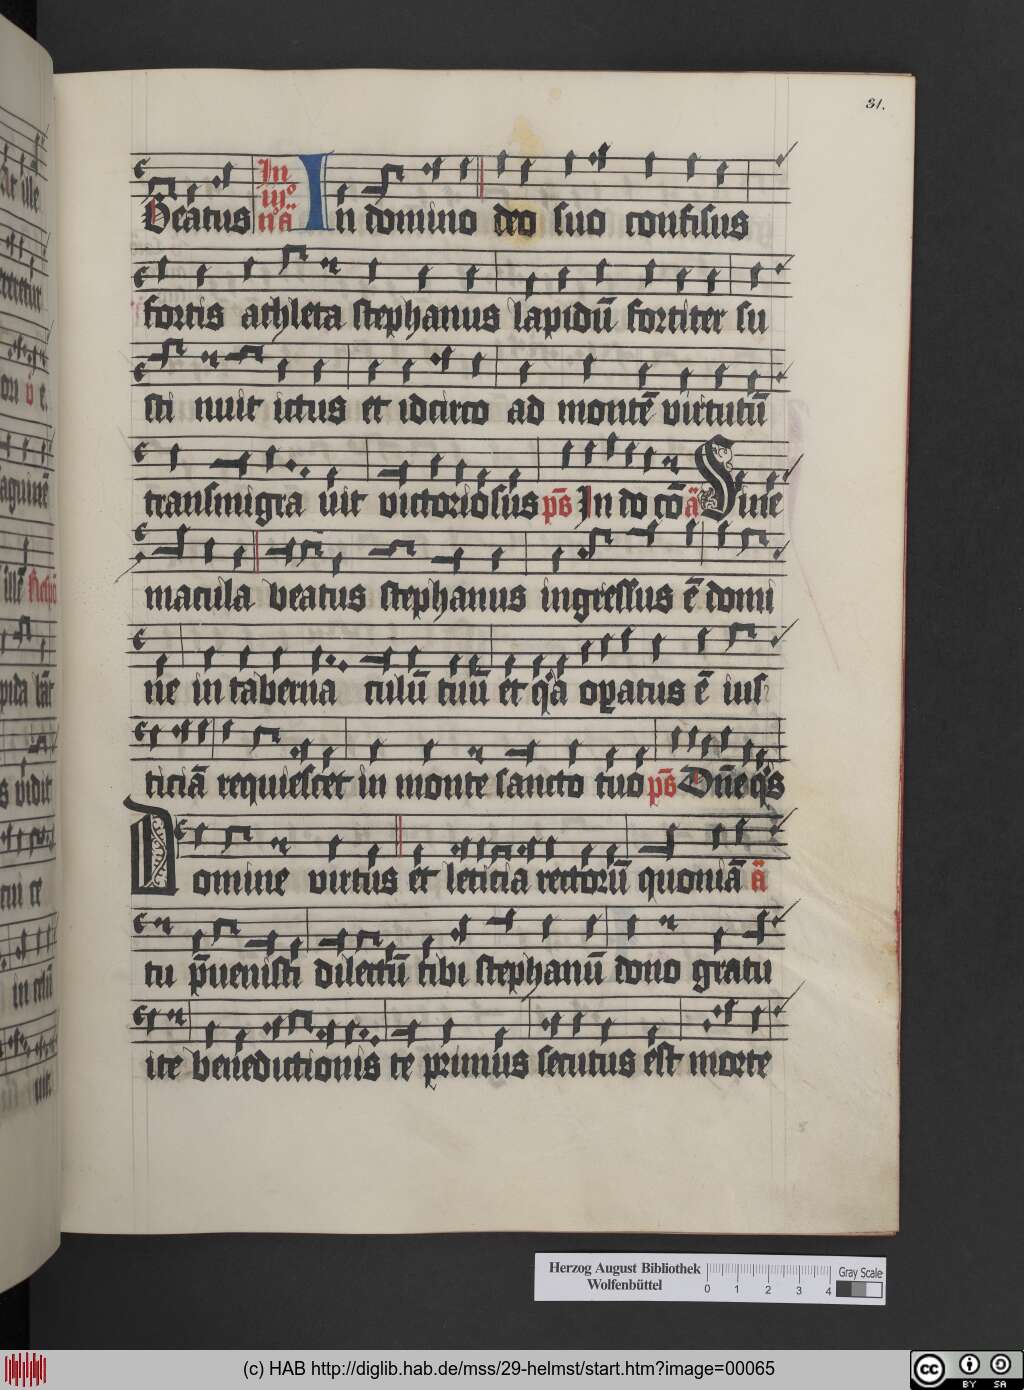 31.
Beatus In iijo no ā In domino deo suo confisus
fortis athleta stephanus lapidū fortiter su
sti nuit ictus et idcirco ad montē virtutū
transmigra uit victoriosus ps In do cō ā Sine
macula beatus stephanus ingressus ē domi
ne in taberna culū tuū et qa opatus ē ius
ticiā requiescet in monte sancto tuo ps Dne qs
Domine virtus et leticia rectorū quoniā ā
tu pueuisti dilectū tibi stephanū dono gratu
ite benedictionis te primus secutus est morte
Herzog August Bibliothek
Wolfenbüttel
0 1 2 3 4
Gray Scale
(c) HAB http://diglib.hab.de/mss/29-helmst/start.htm?image=00065
cc BY SA